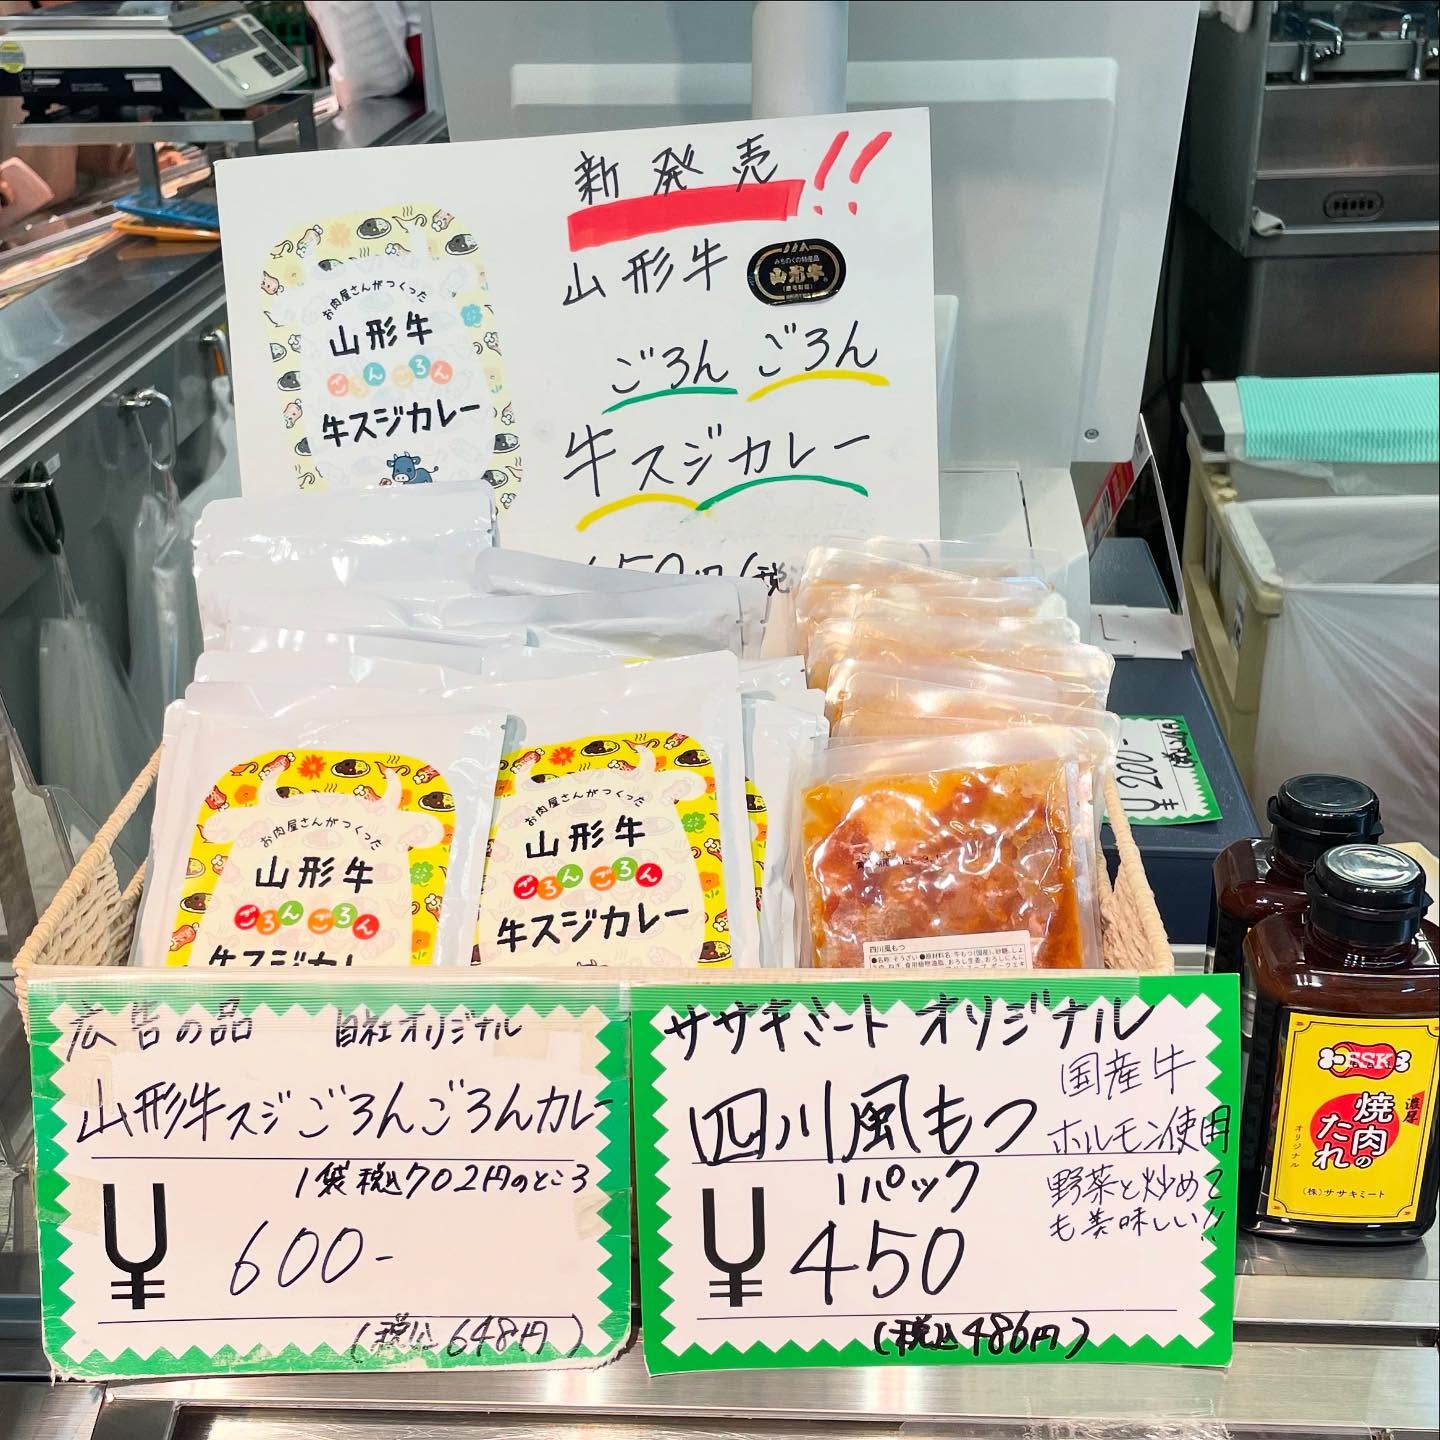 新発売!!
山形牛
みちのくの特産品
山形牛
ごろんごろん
牛スジカレー
お肉屋さんがつくった
山形牛
ごろんごろん
牛スジカレー
お肉屋さんがつくった
山形牛
ごろんごろん
牛スジカレー
お肉屋さんがつくった
山形牛
ごろんごろん
牛スジカレー
四川風もつ
¥200-
広告の品 自社オリジナル
山形牛スジごろんごろんカレー
1袋税込702円のところ
¥600-
(税込648円)
ササキミートオリジナル
四川風もつ
1パック
¥450
(税込486円)
国産牛
ホルモン使用
野菜と炒めて
も美味しい!!
SSK
濃厚
焼肉のたれ
オリジナル
(株)ササキミート